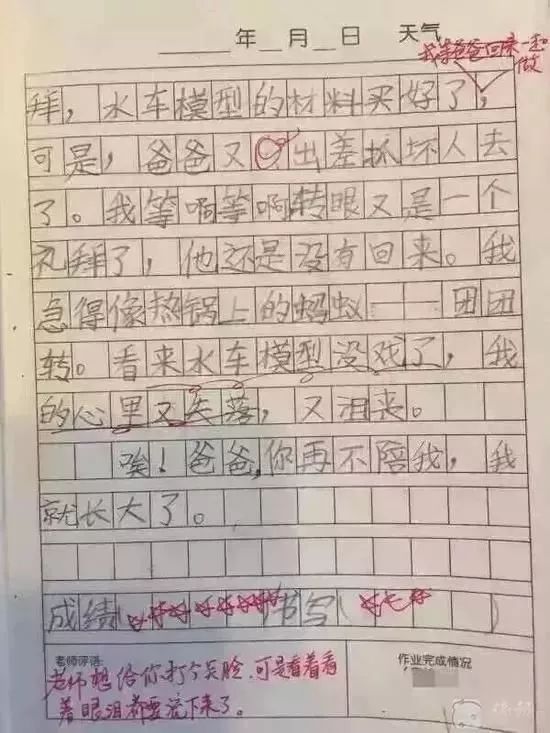 年 月 日 天气
我等爸爸回来一起做
拜，水车模型的材料买好了，
可是，爸爸又出差抓坏人去
了。我等啊等啊转眼又是一个
礼拜了，他还是没有回来。我
急得像热锅上的蚂蚁——团团
转。看来水车模型没戏了，我
的心里又失落，又泪丧。
唉！爸爸，你再不陪我，我
就长大了。
成绩（ 书写（ ）
老师评语： 作业完成情况
老师想给你打个笑脸，可是看着看
着眼泪都要流下来了。